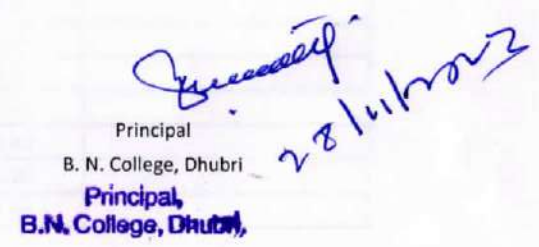 28/11/2023
Principal
B. N. College, Dhubri
Principal,
B.N. College, Dhubri,